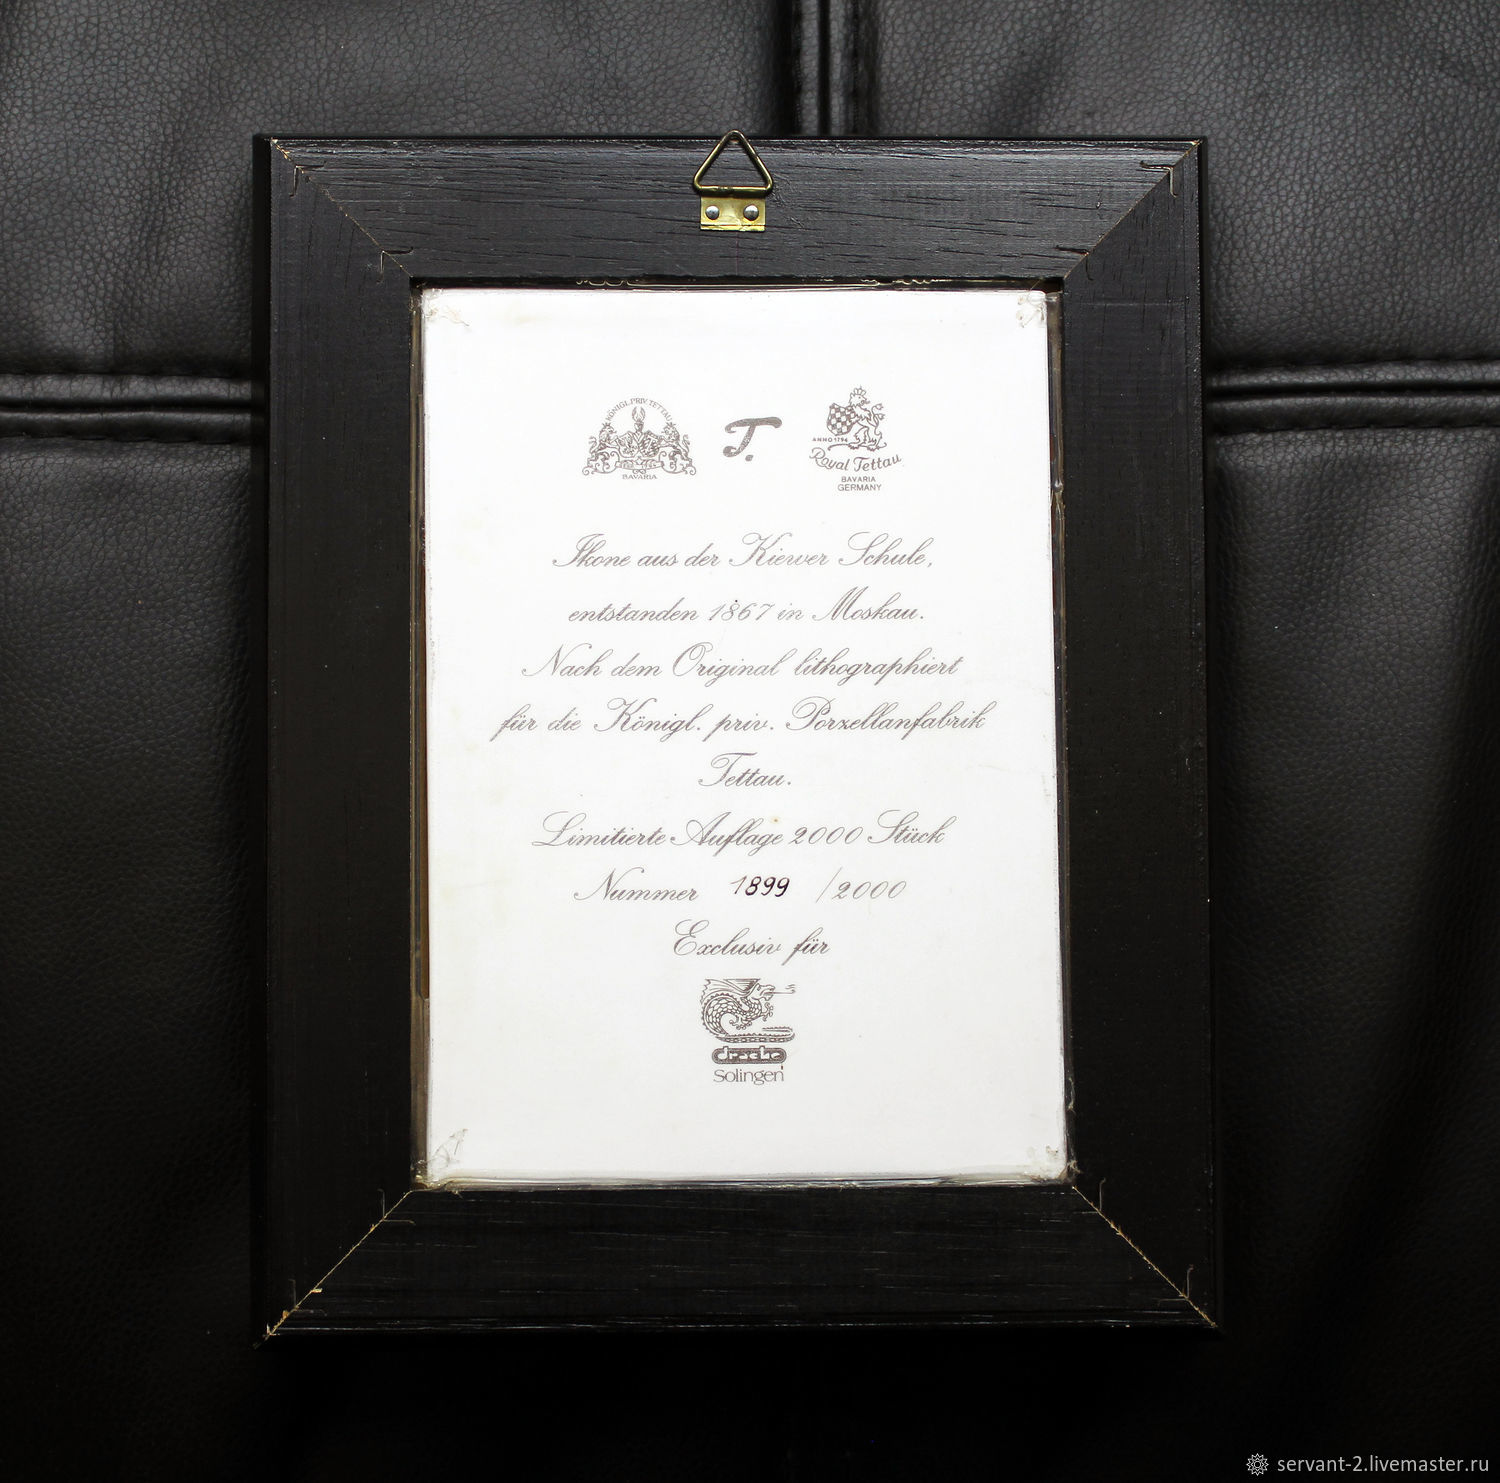 KÖNIGL.PRIV.TETTAU
BAVARIA
T.
ANNO 1794
Royal Tettau
BAVARIA
GERMANY
Ikone aus der Kiewer Schule,
entstanden 1867 in Moskau.
Nach dem Original lithographiert
für die Königl. priv. Porzellanfabrik
Tettau.
Limitierte Auflage 2000 Stück
Nummer 1899 /2000
Exclusiv für
drache
Solingen
servant-2.livemaster.ru